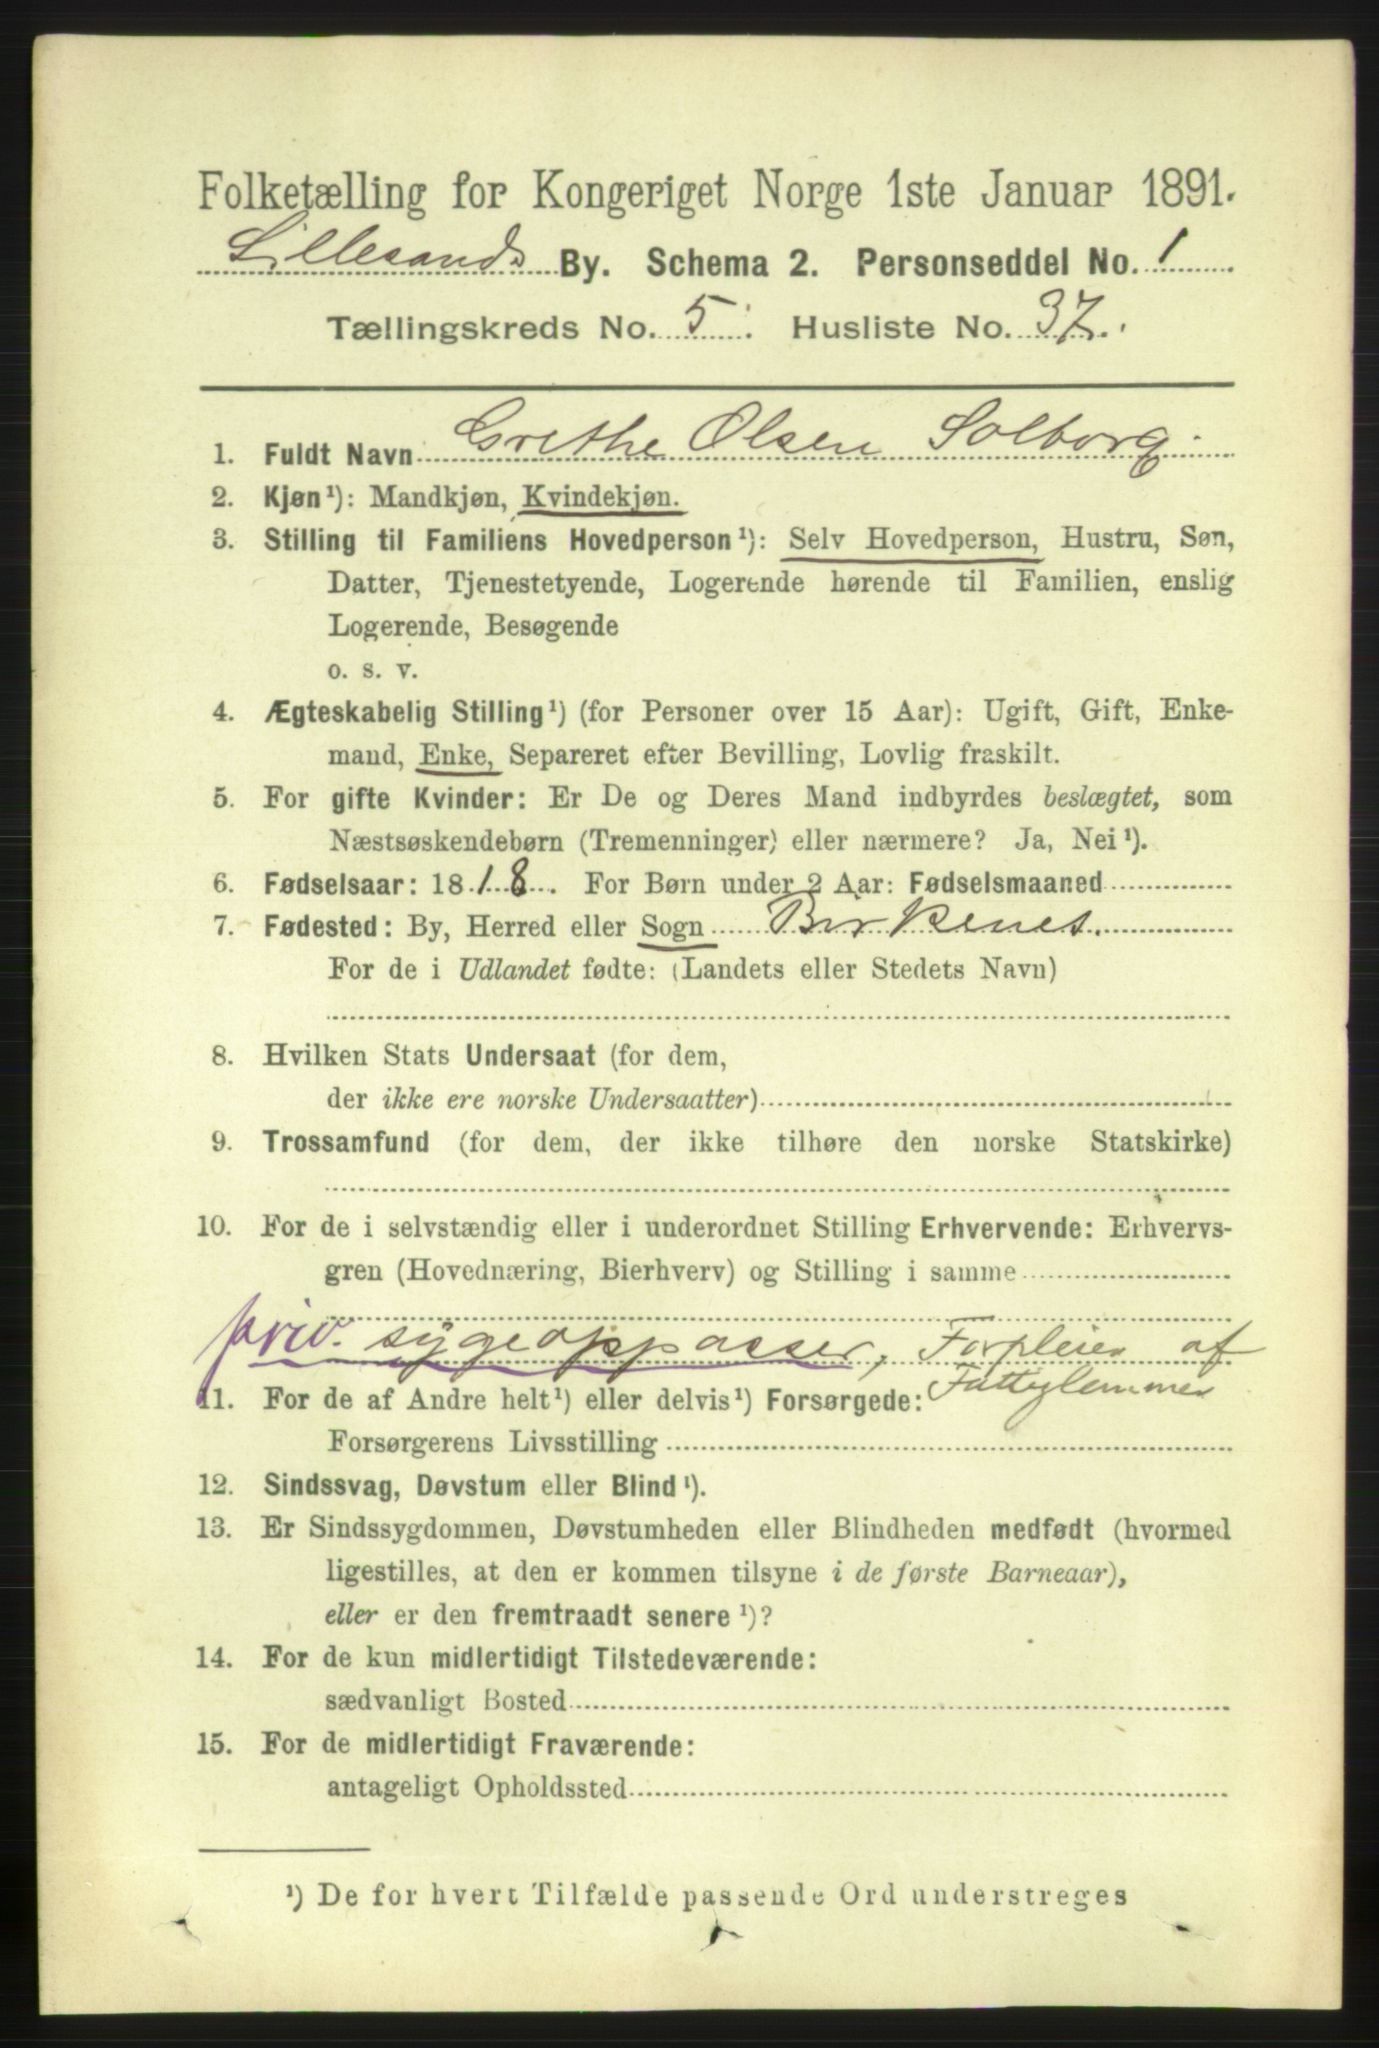 Folketælling for Kongeriget Norge 1ste Januar 1891.
Lillesands By. Schema 2. Personseddel No. 1
Tællingskreds No. 5. Husliste No. 37.
1. Fuldt Navn Grethe Olsen Solborg.
2. Kjøn¹): Mandkjøn, Kvindekjøn.
3. Stilling til Familiens Hovedperson¹): Selv Hovedperson, Hustru, Søn,
Datter, Tjenestetyende, Logerende hørende til Familien, enslig
Logerende, Besøgende
o. s. v.
4. Ægteskabelig Stilling¹) (for Personer over 15 Aar): Ugift, Gift, Enke-
mand, Enke, Separeret efter Bevilling, Lovlig fraskilt.
5. For gifte Kvinder: Er De og Deres Mand indbyrdes beslægtet, som
Næstsøskendebørn (Tremenninger) eller nærmere? Ja, Nei¹).
6. Fødselsaar: 1818. For Børn under 2 Aar: Fødselsmaaned
7. Fødested: By, Herred eller Sogn Birkenes.
For de i Udlandet fødte: (Landets eller Stedets Navn)
8. Hvilken Stats Undersaat (for dem,
der ikke ere norske Undersaatter)
9. Trossamfund (for dem, der ikke tilhøre den norske Statskirke)
10. For de i selvstændig eller i underordnet Stilling Erhvervende: Erhvervs-
gren (Hovednæring, Bierhverv) og Stilling i samme
priv. sygeoppasser, Forpleier af
Fattiglemmer
11. For de af Andre helt¹) eller delvis¹) Forsørgede:
Forsørgerens Livsstilling
12. Sindssvag, Døvstum eller Blind¹).
13. Er Sindssygdommen, Døvstumheden eller Blindheden medfødt (hvormed
ligestilles, at den er kommen tilsyne i de første Barneaar),
eller er den fremtraadt senere¹)?
14. For de kun midlertidigt Tilstedeværende:
sædvanligt Bosted
15. For de midlertidigt Fraværende:
antageligt Opholdssted
¹) De for hvert Tilfælde passende Ord understreges